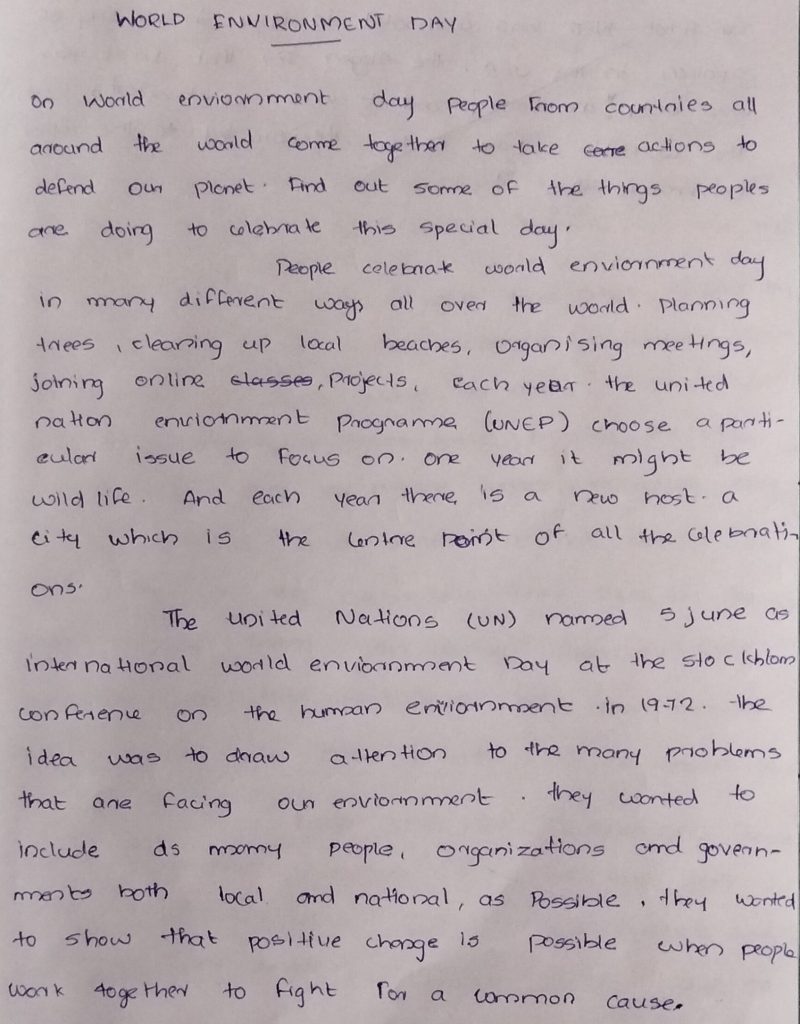 WORLD ENVIRONMENT DAY
On World enviornment day people from countries all
around the world come together to take actions to
defend our planet. Find out some of the things peoples
are doing to celebrate this special day.
People celebrate world enviornment day
in many different ways all over the world. Planning
trees, cleaning up local beaches, organising meetings,
joining online classes, projects, each year. the united
nation enviornment Programme (UNEP) choose a parti-
cular issue to focus on. one year it might be
wild life. And each year there is a new host. a
city which is the centre point of all the celebrati-
ons.
The united Nations (UN) named 5 june as
international world enviornment Day at the stockhlom
conference on the human enviornment .in 1972. the
idea was to draw attention to the many problems
that are facing our enviornment. they wanted to
include as many people, organizations and govern-
ments both local and national, as Possible, they wanted
to show that positive change is possible when people
work together to fight for a common cause.